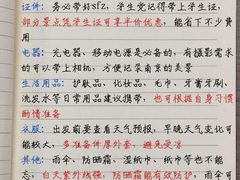 证件：务必带好sfz，学生党记得带上学生证，
部分景点凭学生证可享半价优惠，能省下不少费
用
电器：充电器、移动电源是必备的，有摄影需求
的可以带上相机，方便记录南京的美景
生活用品：护肤品、化妆品、毛巾、牙膏牙刷、
洗发水等日常用品建议携带，也可根据自身习惯
酌情准备
衣服：出发前要查看天气预报，早晚天气变化可
能较大，多准备件厚外套，避免受凉
其他：雨伞、防晒霜、湿纸巾、纸巾等也不能
忘，白天紫外线强，防晒霜能有效防护，雨伞